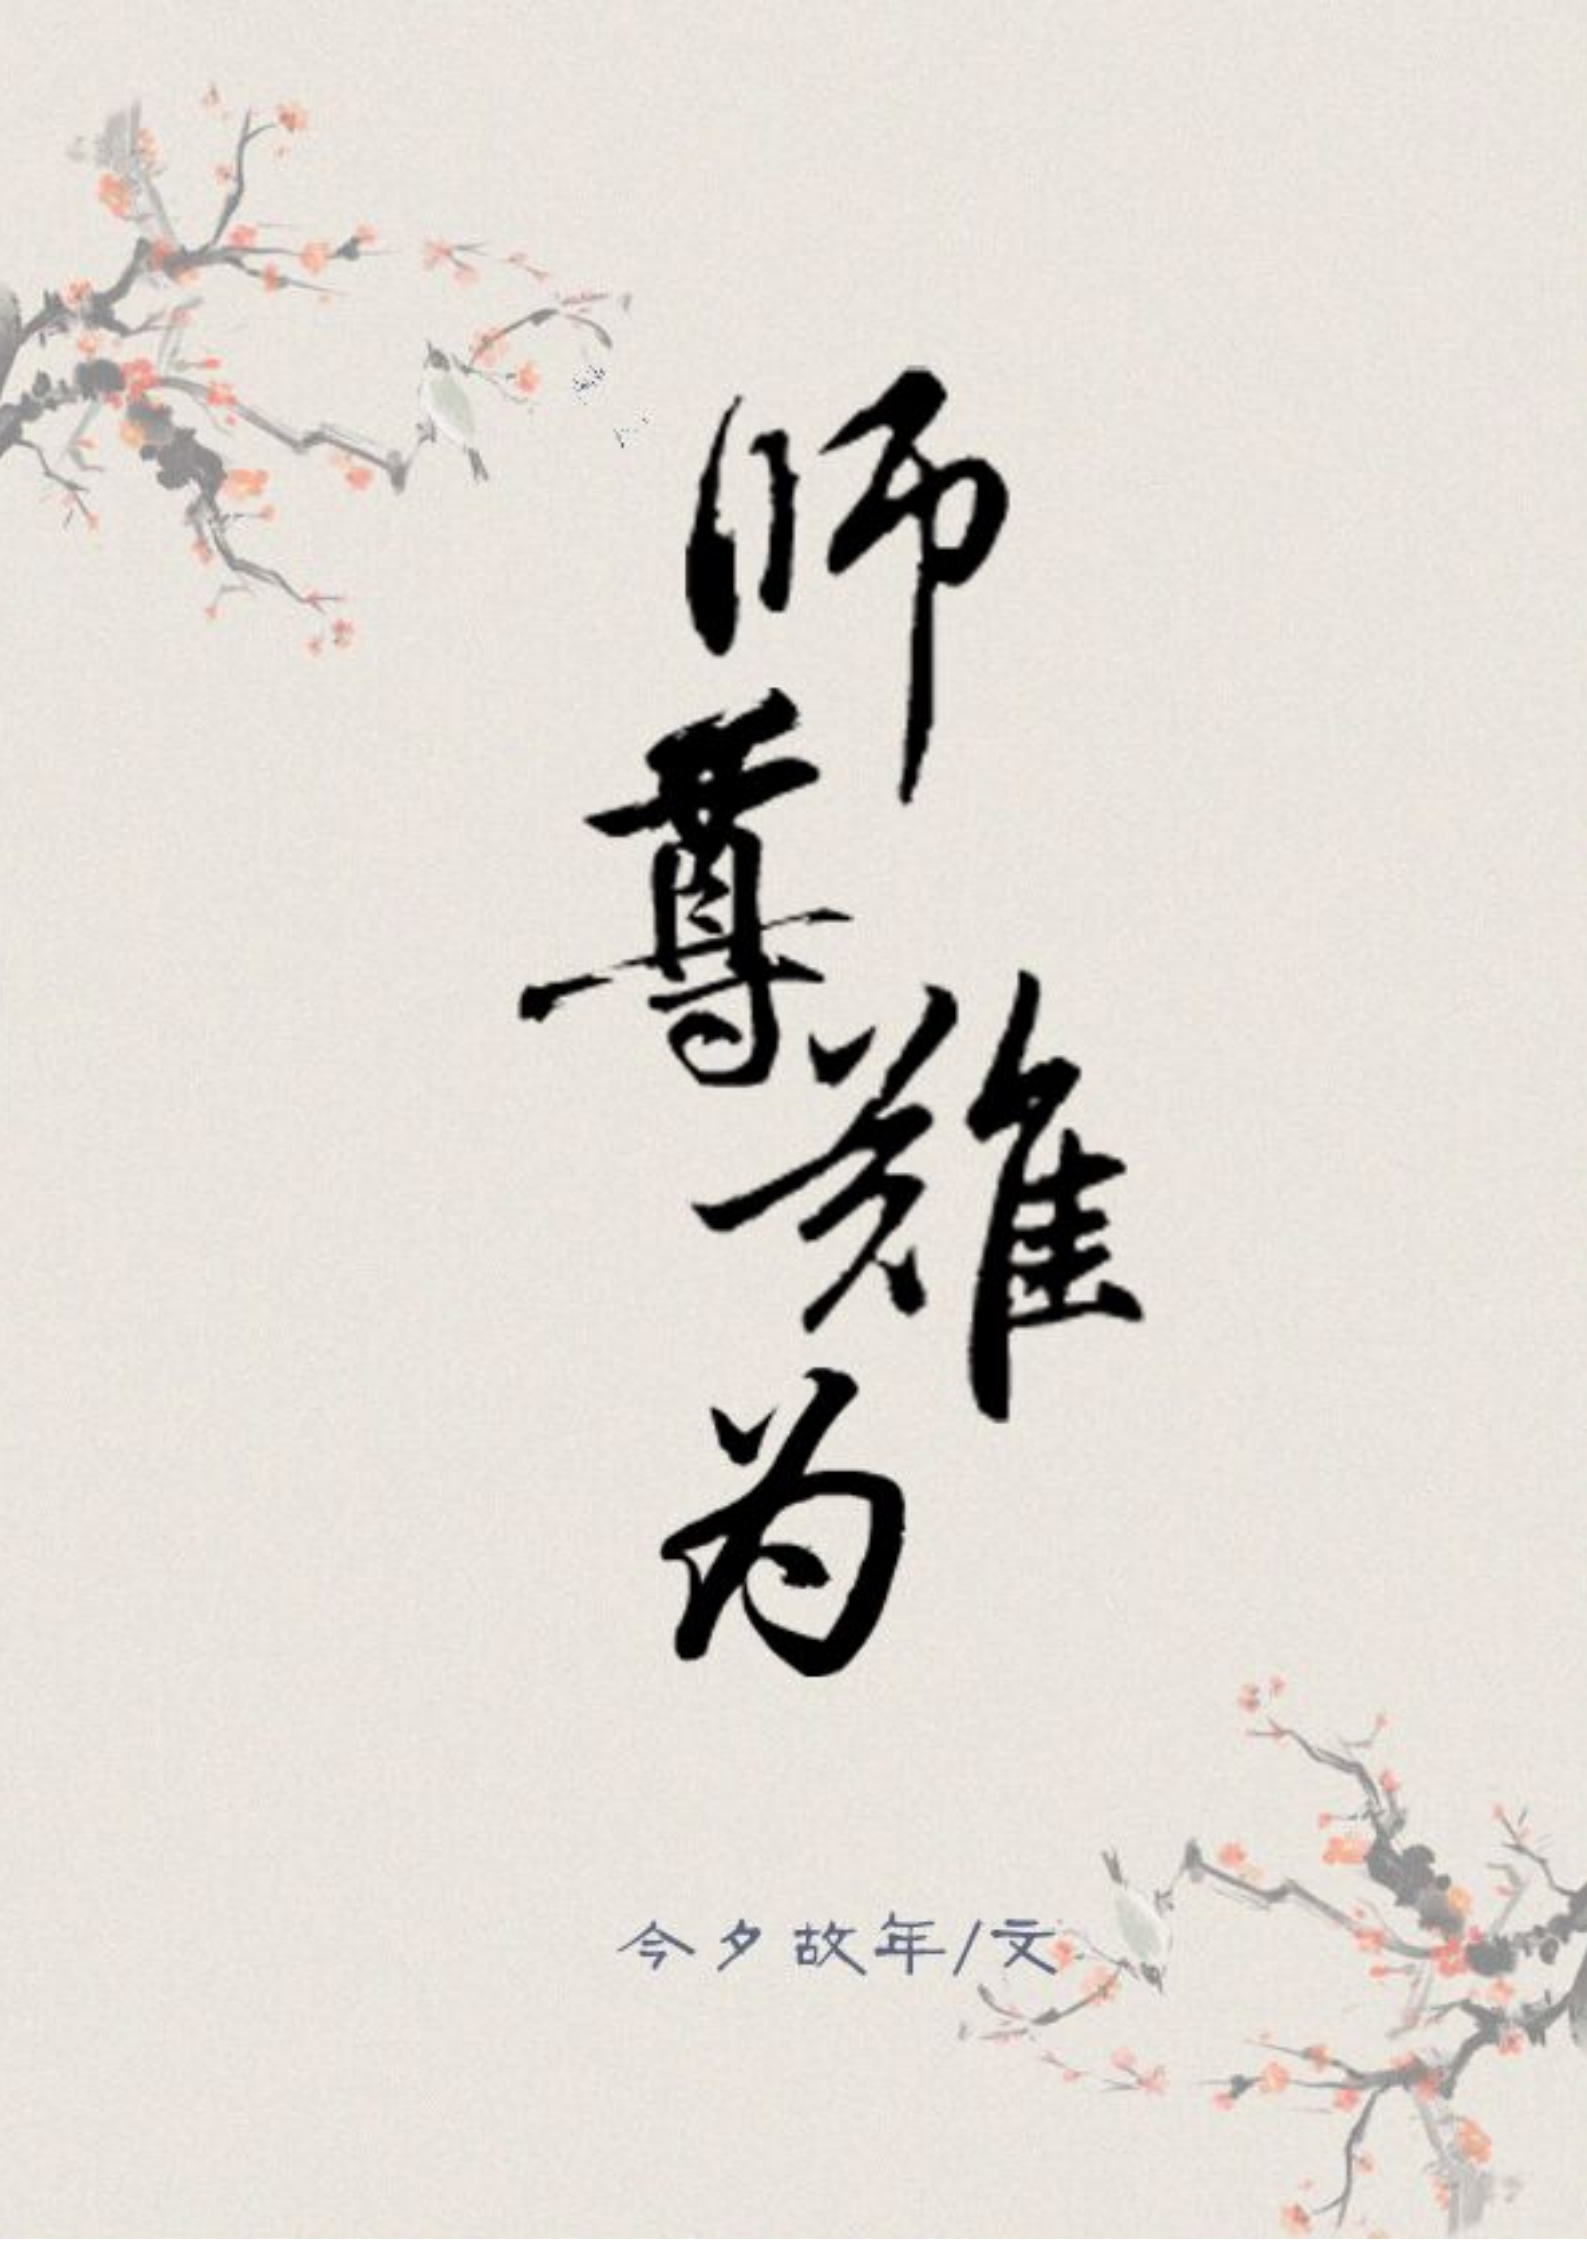 师尊难为
今夕故年/文